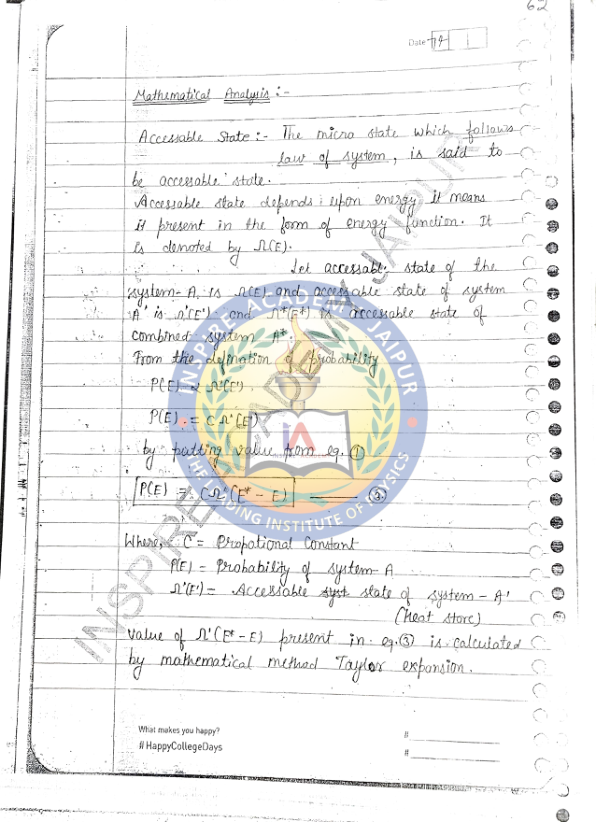 62
Date 14
Mathematical Analysis :-
Accessable State :- The micro state which follows
law of system, is said to
be accessable state.
Accessable state depends upon energy it means
it present in the form of energy function. It
is denoted by Ω(E).
Let accessable state of the
system-A is Ω(E) and accessable state of system
A' is Ω'(E') and Ω*(E*) is accessable state of
combined system A*.
From the defination of probability
P(E) ∝ Ω'(E')
P(E) = C Ω'(E')
by putting value from eq. ①
P(E) = C Ω'(E* - E) ——— ③
Where, C = Propotional Constant
P(E) = Probability of system-A
Ω'(E') = Accessable syst state of system - A'
(Heat store)
Value of Ω'(E* - E) present in eq. ③ is calculated
by mathematical method Taylor expansion.
What makes you happy?
#HappyCollegeDays
#
#
INSPIRE ACADEMY JAIPUR
INSPIRE ACADEMY JAIPUR
IA
THE LEADING INSTITUTE OF PHYSICS